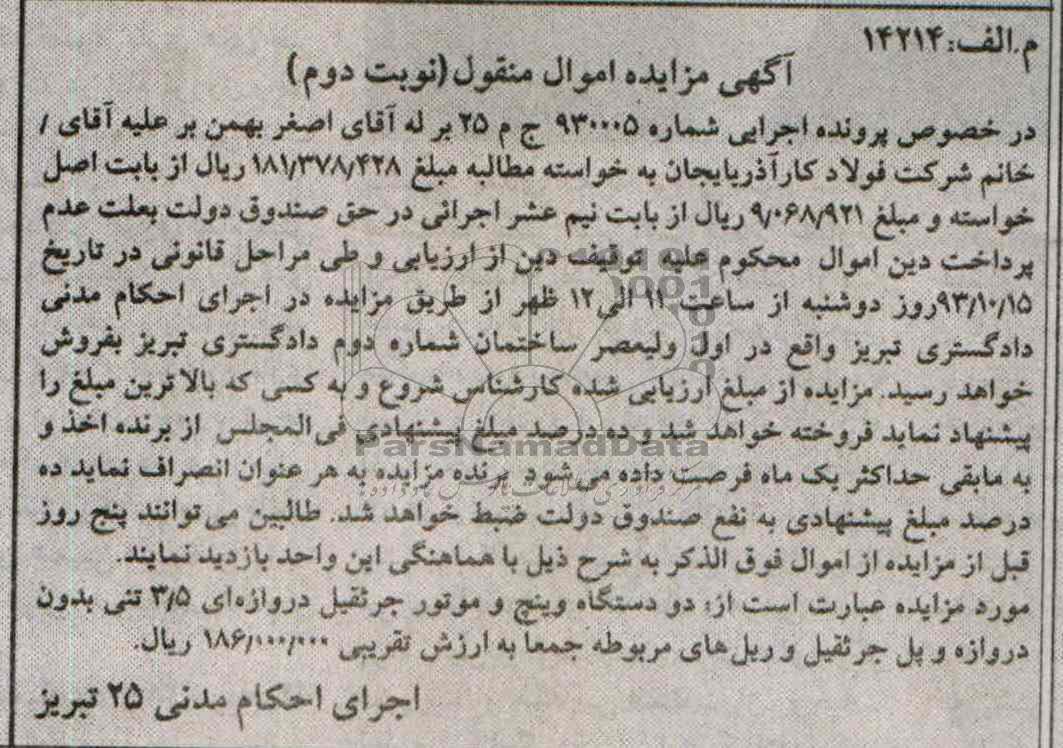 م.الف: ۱۴۲۱۴
آگهی مزایده اموال منقول (نوبت دوم)
در خصوص پرونده اجرایی شماره ۹۳۰۰۰۵ ج م ۲۵ بر له آقای اصغر بهمن بر علیه آقای /
خانم شرکت فولاد کارآذربایجان به خواسته مطالبه مبلغ ۱۸۱/۳۷۸/۴۲۸ ریال از بابت اصل
خواسته و مبلغ ۹/۰۶۸/۹۲۱ ریال از بابت نیم عشر اجرائی در حق صندوق دولت بعلت عدم
پرداخت دین اموال محکوم علیه توقیف دین از ارزیابی و طی مراحل قانونی در تاریخ
۹۳/۱۰/۱۵روز دوشنبه از ساعت ۱۱ الی ۱۲ ظهر از طریق مزایده در اجرای احکام مدنی
دادگستری تبریز واقع در اول ولیعصر ساختمان شماره دوم دادگستری تبریز بفروش
خواهد رسید. مزایده از مبلغ ارزیابی شده کارشناس شروع و به کسی که بالاترین مبلغ را
پیشنهاد نماید فروخته خواهد شد و ده درصد مبلغ پیشنهادی فی المجلس از برنده اخذ و
ParsNamadData
به مابقی حداکثر یک ماه فرصت داده می شود برنده مزایده به هر عنوان انصراف نماید ده
درصد مبلغ پیشنهادی به نفع صندوق دولت ضبط خواهد شد. طالبین می توانند پنج روز
قبل از مزایده از اموال فوق الذکر به شرح ذیل با هماهنگی این واحد بازدید نمایند.
مورد مزایده عبارت است از: دو دستگاه وینچ و موتور جرثقیل دروازه‌ای ۳/۵ تنی بدون
دروازه و پل جرثقیل و ریل های مربوطه جمعا به ارزش تقریبی ۱۸۶/۰۰۰/۰۰۰ ریال.
اجرای احکام مدنی ۲۵ تبریز